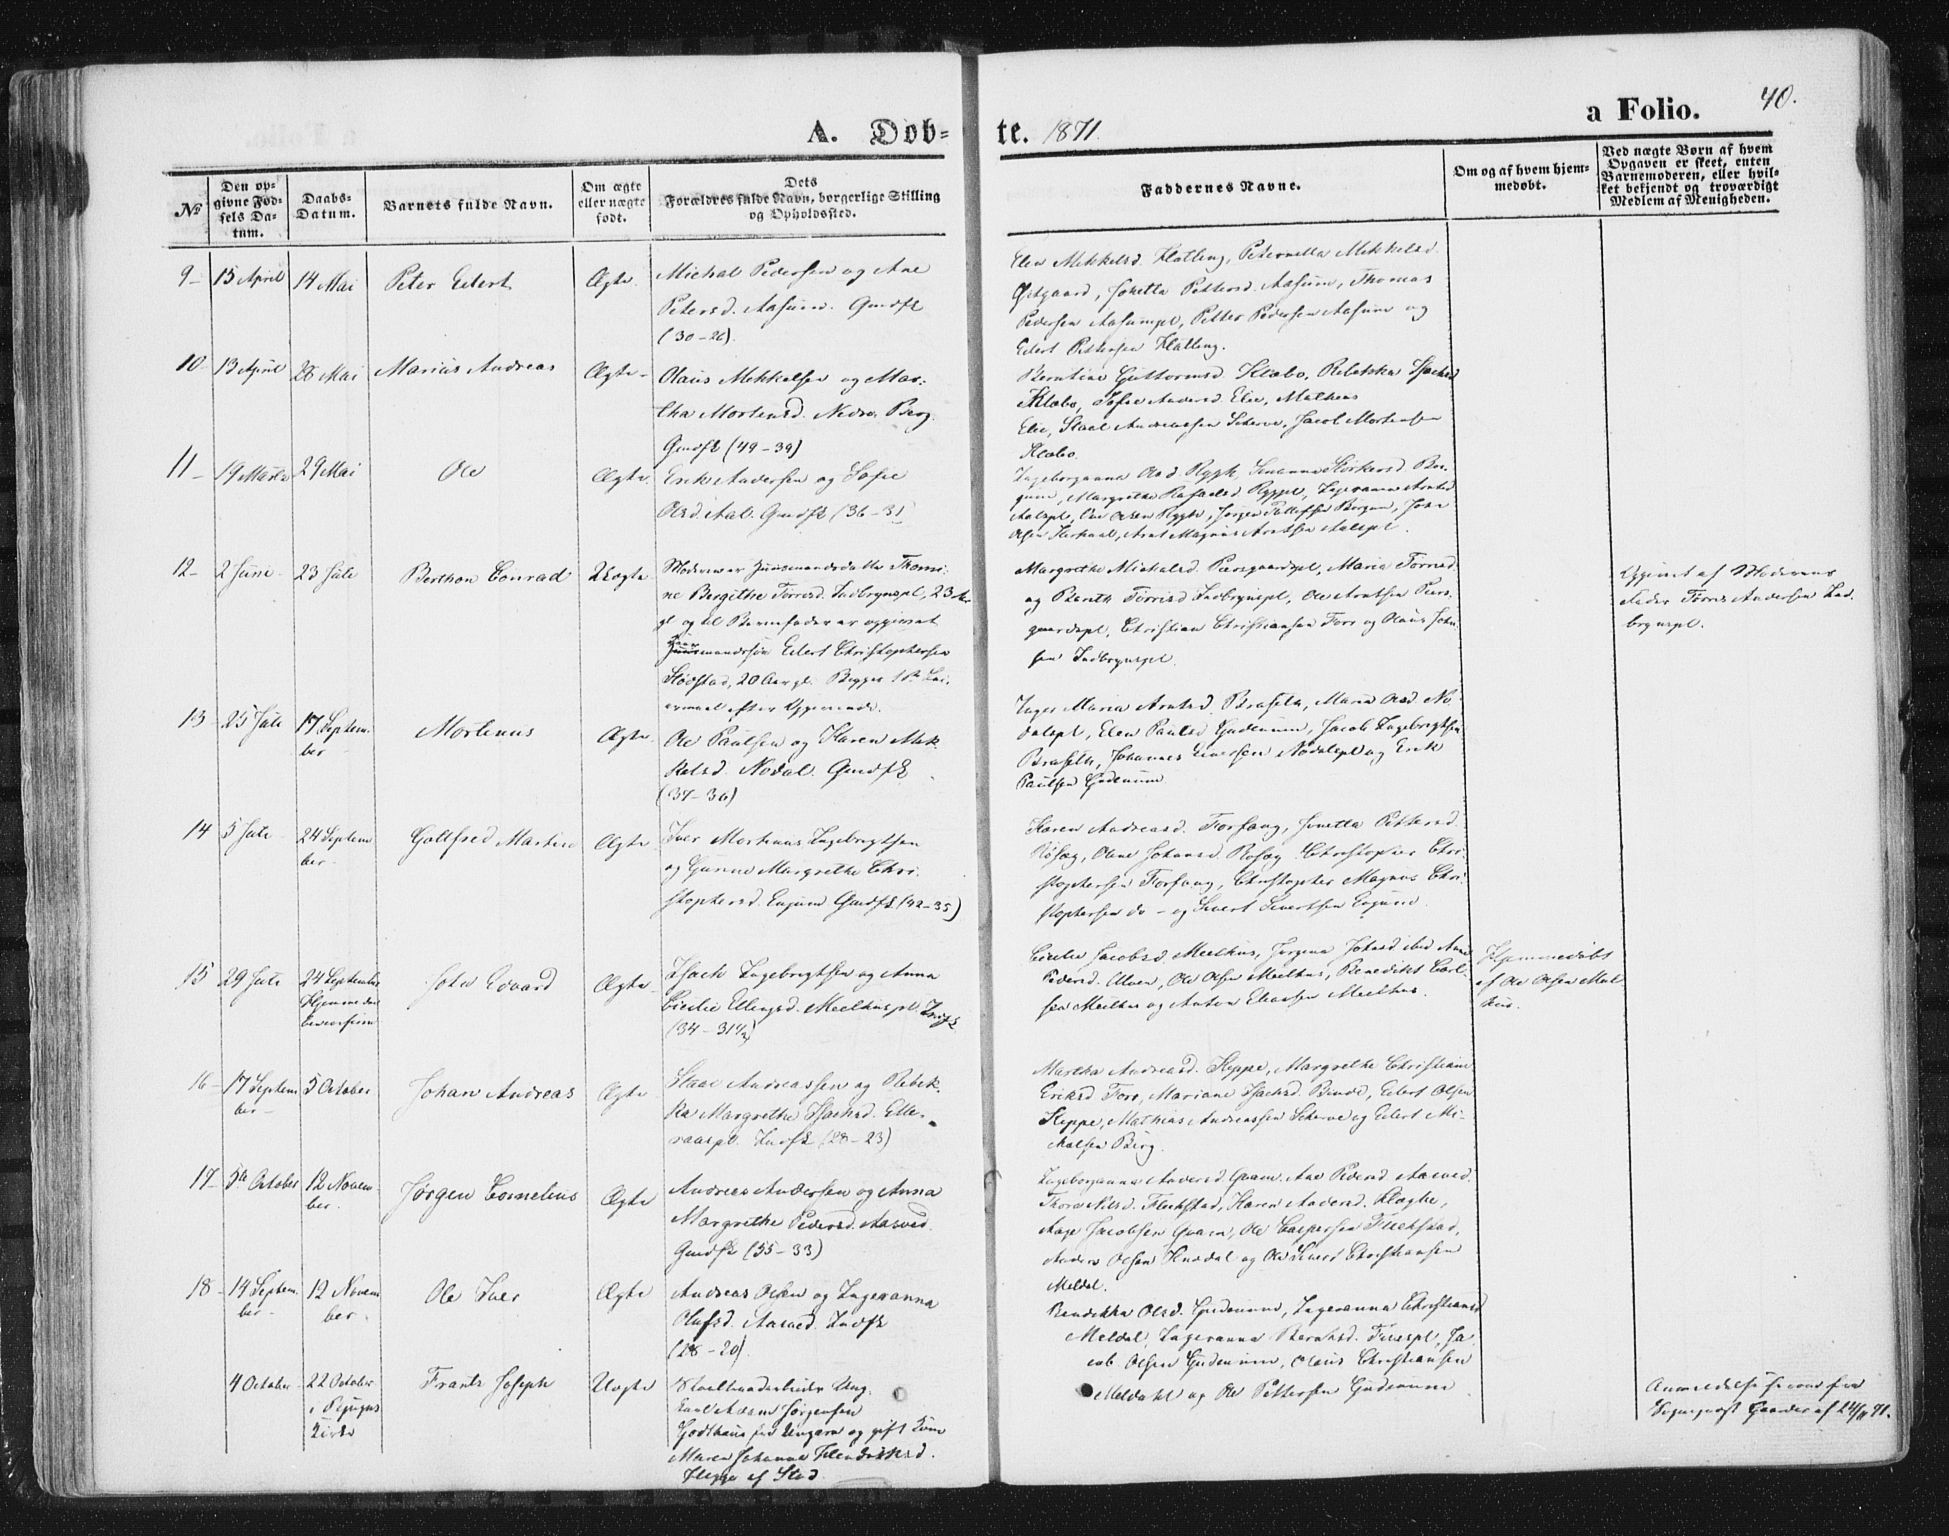 40.
A. Døb- te. 1871.
a Folio.
No
Den op-
givne Fød-
sels Da-
tum.
Daabs-
Datum.
Barnets fulde Navn.
Om ægte
eller uægte
født.
Dets
Forældres fulde Navn, borgerlige Stilling
og Opholdssted.
Faddernes Navne.
Om og af hvem hjem-
medøbt.
Ved uægte Børn af hvem
Opgaven er skeet, enten
Barnemoderen, eller hvil-
ket bekjendt og troværdigt
Medlem af Menigheden.
9 15 April 14 Mai Peter Edert Ægte
Michal Pedersen og Ane
Petersd. Aasum. Gmdfk
(30-26).
Elen Mikkelsd. Klatling, Peternella Mekkelsd.
Østgaard, Jonetta Pettersd. Aasum, Thomas
Pedersen Aasumpl, Petter Pedersen Aasum og
Edert Pettersen Klatling.
10 13 April 28 Mai Marius Andreas Ægte
Olaus Mekkelsen og Mar-
tha Mortensd. Nedre Berg.
Gmdfk (49-39)
Berntine Guttormsd. Klæbo, Rebekka Isachsd
Klæbo, Sofie Andersd. Elie, Mathias
Elie, Staal Andreassen Scherve, Jacob Mortensen
Klæbo.
11 19 Marts 29 Mai Ole Ægte
Erik Andersen og Sofie
Olsd. Aal. Gmdfk (36-31)
12 2 Juni 23 Juli Berthon Conrad Uægte
Moderen er Huusmandsdatter Thomi-
ne Bergithe Torresd. Indbrynspl, 23 Aar
gl og til Barnefader er opgivet
Huusmandssøn Edert Christophersen
Stövstad, 20 Aar gl. Begges 1ste Lei-
ermaal efter Opgivende.
Margrethe Michalsd. Præsgaardspl, Maria Torresd.
og Berith Torrisd Indbrynspl, Ole Arntsen Præs-
gaardspl, Christian Christiansen Forr og Olaus John-
sen Indbrynspl.
Opgivet af Moderens
Fader Torres Andersen Ind-
brynspl.
13 25 Juli 17 Septem-
ber Mortinus Ægte
Ole Paulsen og Karen Mek-
kelsd. Nodal. Gmdfk
(37-36)
Inger Maria Arntsd. Braseth, Maria Olsd No-
dalspl, Elen Paulsd Gudmum, Jacob Ingebrigtsen
Braseth, Johannes Iversen Nodalspl og Erik
Paulsen Gudmum
14 5 Juli 24 Septem
ber Gottfred Martin Ægte
Iver Mortinus Ingebrigtsen
og Gunne Margrethe Chri-
stophersd. Eugum Gmdfk (42-35)
Karen Andreasd. Forfang, Jonetta Pettersd.
Rosæg, Oline Johansd. Rosæg Christopher Chri-
stophersen Forfang, Christopher Magnus Chri-
stophersen do - og Sivert Sivertsen Eugum.
15 29 Juli 24 September
Hjemmedaa-
ben confirm. John Edvard Ægte
Isach Ingebrigtsen og Anna
Cicilie Ellingsd. Meelhuspl. Indfk
(34-31½)
Cicilie Jacobsd. Meelhus, Jörgine Johnsd ibid Ane
Pedersd. Elven, Ole Olsen Meelhus, Benedikt Carl-
sen Meelhus og Anton Eliassen Meelhus.
Hjemmedöbt
af Ole Olsen Mel-
hus.
16 17 Septem
ber 5 October Johan Andreas Ægte
Staal Andreassen og Rebek-
ka Margrethe Isachsd. Elle-
raaspl. Indfk (28-23)
Martha Andreasd. Keppe, Margrethe Christiane
Eriksd Forr, Mariane Isachsd. Binde, Edert Olsen
Keppe, Mathias Andreassen Scherve og Edert Mi-
kalsen Berg.
17 5te October 12 Novem-
ber. Jörgen Cornelius Ægte
Andreas Andersen og Anna
Margrethe Pedersd. Aasved.
Gmdfk (35-33)
Ingeborganna Andersd. Qvam. Ane Pedersd Aasved.
Thora Nilsd. Flekstad, Karen Andersd. Klæghe,
Aage Jacobsen Qvam, Ole Caspersen Flekstad,
Anders Olsen Hundal og Ole Sivert Christiansen
Meldal.
18 14 Septem-
ber 12 Novem
ber Ole Iver Ægte
Andreas Olsen og Ingeranna
Olufsd. Aasved. Indfk
(28-20)
Bendikka Olsd. Gudmum, Ingeranna Christiansd
Meldal, Ingeranna Berntsd. Fuespl, Ja-
cob Olsen Gudmum, Olaus Christiansen
Meldahl og Ole Pettersen Gudmum
4 October 22 October
i Bejgns
Kirke Frants Joseph Uægte
Carl Adam Jörgensen
Godthaus fra Ungarn og gift Kone
Maren Johanne Hendriksd.
Hegge af Stod
Anmeldelse herom fra
Sognepræst Gaarder af 24/11 71.